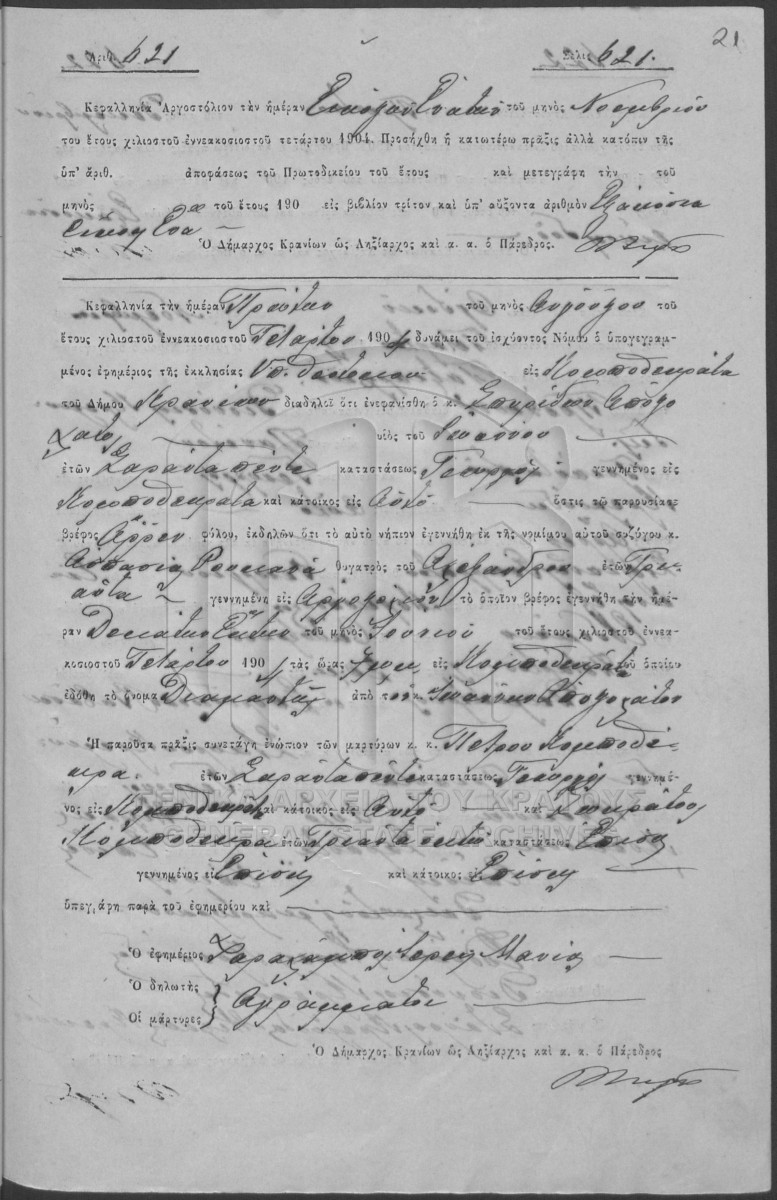 21
Ἀριθ. 621 Σελὶς 621.
Κεφαλληνία Ἀργοστόλιον τὴν ἡμέραν Εἰκοστὴν Ἐνάτην τοῦ μηνὸς Νοεμβρίου
του ἔτους χιλιοστοῦ ἐννεακοσιοστοῦ τετάρτου 1904. Προσήχθη ἡ κατωτέρω πρᾶξις ἀλλὰ κατόπιν τῆς
ὑπ' ἀριθ. ἀποφάσεως τοῦ Πρωτοδικείου τοῦ ἔτους καὶ μετεγράφη τὴν τοῦ
μηνὸς τοῦ ἔτους 190 εἰς βιβλίον τρίτον καὶ ὑπ' αὔξοντα ἀριθμὸν Ἑξακόσια
εἴκοσι ἕνα
Ὁ Δήμαρχος Κρανίων ὡς Ληξίαρχος καὶ α. α. ὁ Πάρεδρος.
Κεφαλληνία τὴν ἡμέραν Πρώτην τοῦ μηνὸς Αὐγούστου τοῦ
ἔτους χιλιοστοῦ ἐννεακοσιοστοῦ Τετάρτου 1904 δυνάμει τοῦ ἰσχύοντος Νόμου ὁ ὑπογεγραμ-
μένος ἐφημέριος τῆς ἐκκλησίας Υπ. εἰς Κομποθεκράτα
τοῦ Δήμου Κρανίων διαδηλοῖ ὅτι ἐνεφανίσθη ὁ κ. Σπυρίδων Ἀπόγο
χάτος υἱὸς τοῦ Ἰωάννου
ἐτῶν Σαράντα πέντε καταστάσεως Γεωργὸς γεννημένος εἰς
Κομποθεκράτα καὶ κάτοικος εἰς Αὐτό ὅστις τῷ παρουσίασε
βρέφος Ἄρρεν φύλου, ἐκδηλῶν ὅτι τὸ αὐτὸ νήπιον ἐγεννήθη ἐκ τῆς νομίμου αὐτοῦ συζύγου κ.
Ἀσπασία θυγατρὸς τοῦ Ἀλεξάνδρου ἐτῶν Τρι-
άντα γεννημένη εἰς Ἀργοστόλιον τὸ ὁποῖον βρέφος ἐγεννήθη τὴν ἡμέ-
ραν Δεκάτην Ἕκτην τοῦ μηνὸς Ἰουνίου τοῦ ἔτους χιλιοστοῦ ἐννεα-
κοσιοστοῦ Τετάρτου 1904 τὰς ὥρας εἰς Κομποθεκράτα τοῦ ὁποίου
ἐδόθη τὸ ὄνομα Διαμαντῆς ἀπὸ τὸν κ. Ἰωάννην Ἀπογοχάτον
Ἡ παροῦσα πρᾶξις συνετάγη ἐνώπιον τῶν μαρτύρων κ. κ. Πέτρου Κομποθέ-
κρα. ἐτῶν Σαράντα πέντε καταστάσεως Γεωργὸς γεννημέ-
νος εἰς Κομποθεκράτα καὶ κάτοικος εἰς Αὐτό καὶ Σωκράτος
Κομποθέκρα ἐτῶν Τριάντα ὀκτώ καταστάσεως Ἐπίσης
γεννημένος εἰς Ἐπίσης καὶ κάτοικος εἰς Ἐπίσης
ὑπεγράφη παρὰ τοῦ ἐφημερίου καὶ
Ὁ ἐφημέριος Χαράλαμπος Ἱερεὺς Μανιὰς
Ὁ δηλωτὴς
Οἱ μάρτυρες } Ἀγράμματοι
Ὁ Δήμαρχος Κρανίων ὡς Ληξίαρχος καὶ α. α. ὁ Πάρεδρος
ΓΕΝΙΚΑ ΑΡΧΕΙΑ ΤΟΥ ΚΡΑΤΟΥΣ
GENERAL STATE ARCHIVES